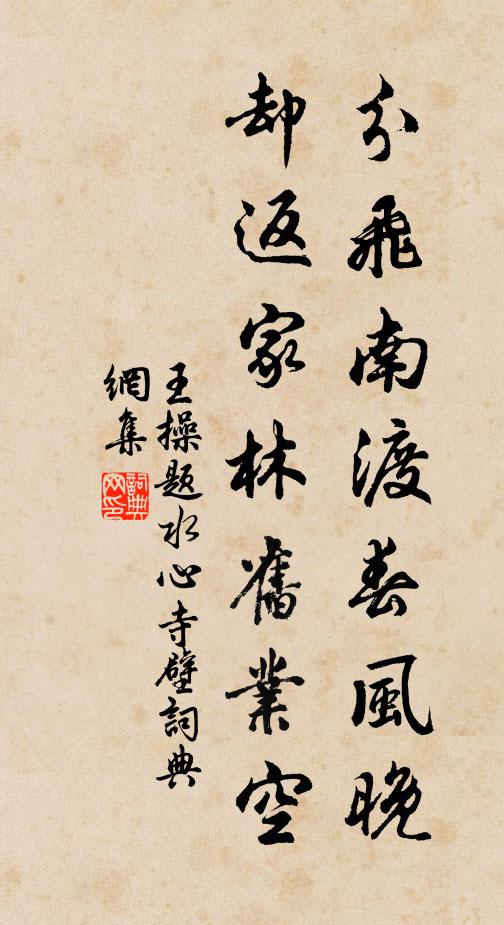 分飛南渡春風晚
却返家林舊業空
王操題水心寺壁詞典
網集
詞典
网印